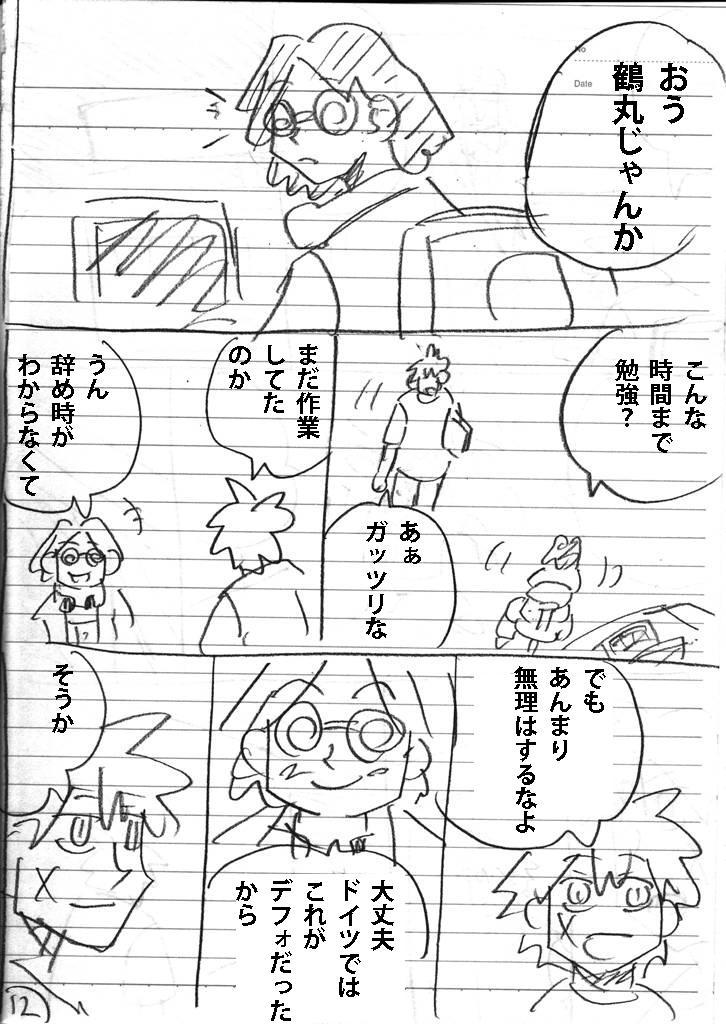 No
Date
おう
鶴丸じゃんか
こんな
時間まで
勉強?
あぁ
ガッツリな
まだ作業
してた
のか
うん
辞め時が
わからなくて
でも
あんまり
無理はするなよ
大丈夫
ドイツでは
これが
デフォだった
から
そうか
12